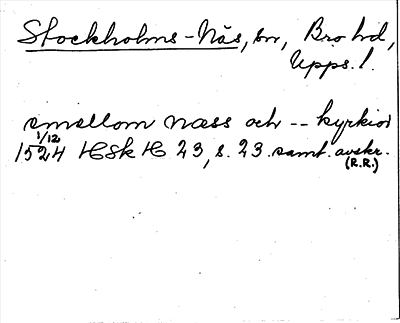 Stockholms-Näs, sn, Bro hd,
Upps. l.
emellom næss och -- kyrkior
1/12
1524 HSk H 23, s. 23. samt. avskr.
(R.R.)